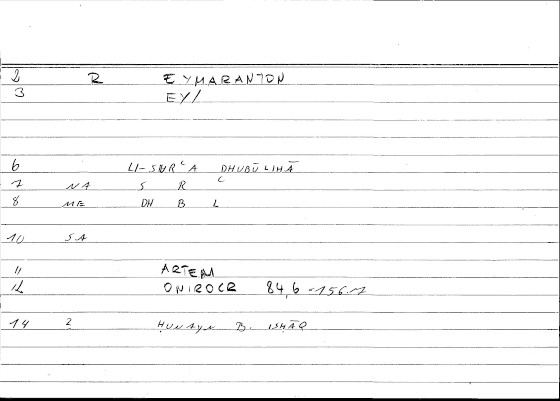 2 R EYMARANTON
3 EY/
6 LI-SURʿA DHUBŪLIHĀ
7 NA S R ʿ
8 ME DH B L
10 SA
11 ARTEM
12 ONIROCR 84,6 -156.17
14 2 ḤUNAYN B. ISḤĀQ